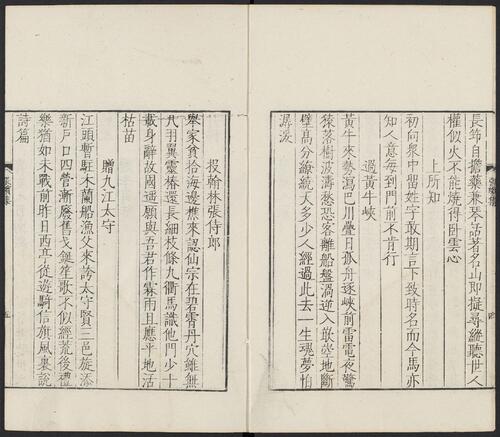 長笻自擔藥兼琴話著名山即擬尋縱聽世人
權似火不能燒得臥雲心
上所知
初向衆中留姓字敢期言下致時名而今馬亦
知人意每到門前不肯行
過黃牛峽
黃牛來勢瀉巴川疊日孤舟逐峽前雷電夜驚
猿落樹波濤愁恐客離船盤渦逆入嵌空地斷
壁高分繚繞天多少人經過此去一生魂夢怕
潺湲
投翰林張侍郎
舉家貧拾海邊樵來認仙宗在碧霄丹穴雖無
凡羽翼靈椿還長細枝條九衢馬識他門少十
載身辭故國遥願與吾君作霖雨且應平地活
枯苗
贈九江太守
江頭暫駐木蘭船漁父來誇太守賢二邑旋添
新戶口四營漸廢舊戈鋋笙歌不似經荒後禮
樂猶如未戰前昨日西亭從遊騎信旗風裏說
詩篇